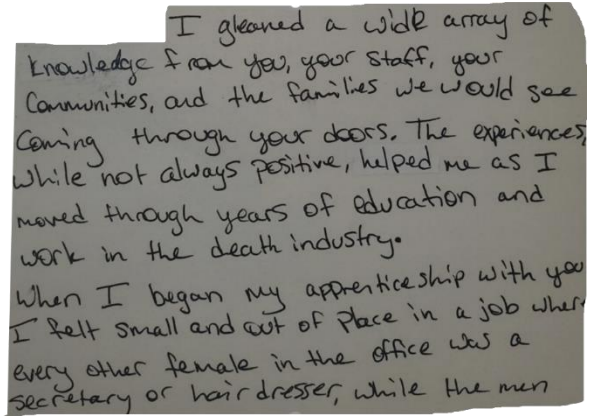 I gleaned a wide array of
knowledge from you, your staff, your
Communities, and the families we would see
coming through your doors. The experiences,
while not always positive, helped me as I
moved through years of education and
work in the death industry.
When I began my apprenticeship with you
I felt small and out of place in a job where
every other female in the office was a
secretary or hairdresser, while the men